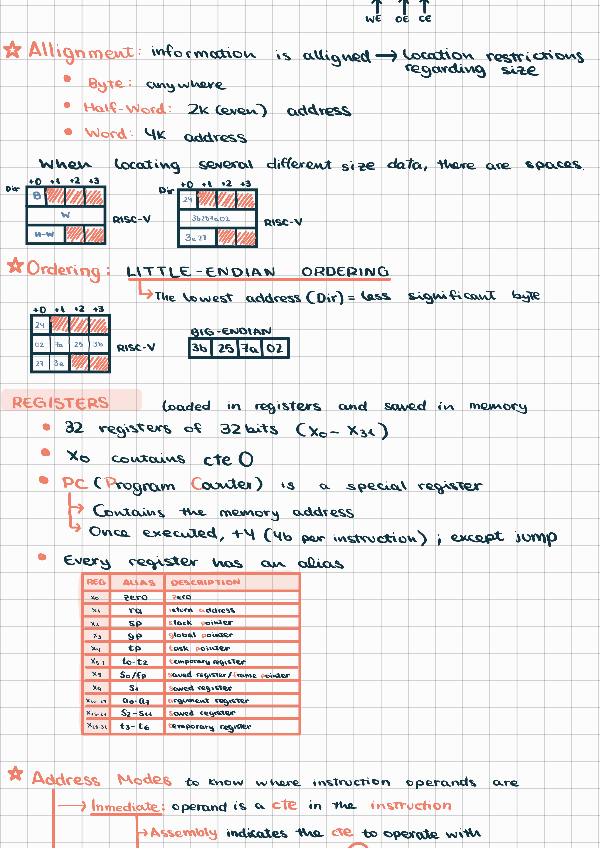 WE OE CE
☆ Allignment: information is alligned → location restrictions
regarding size
• Byte: anywhere
• Half-Word: 2k (even) address
• Word: 4k address
When locating several different size data, there are spaces.
Dir +0 +1 +2 +3
B
W
H-W
RISC-V
Dir +0 +1 +2 +3
24
3b257a02
3a27
RISC-V
☆ Ordering: LITTLE-ENDIAN ORDERING
↳ The lowest address (Dir) = less significant byte
+0 +1 +2 +3
24
02 7a 25 3b
27 3a
RISC-V
BIG-ENDIAN
3b 25 7a 02
REGISTERS loaded in registers and saved in memory
• 32 registers of 32 bits (X0 - X31)
• X0 contains cte 0
• PC (Program Counter) is a special register
↳ Contains the memory address
↳ Once executed, +4 (4b per instruction) ; except jump
• Every register has an alias
REG ALIAS DESCRIPTION
X0 zero zero
X1 ra return address
X2 sp stack pointer
X3 gp global pointer
X4 tp task pointer
t0-t2 temporary register
s0/fp saved register/frame pointer
X9 s1 saved register
a0-a7 argument register
s2-s11 saved register
t3-t6 temporary register
☆ Address Modes to know where instruction operands are
→ Inmediate: operand is a cte in the instruction
↳ Assembly indicates the cte to operate with